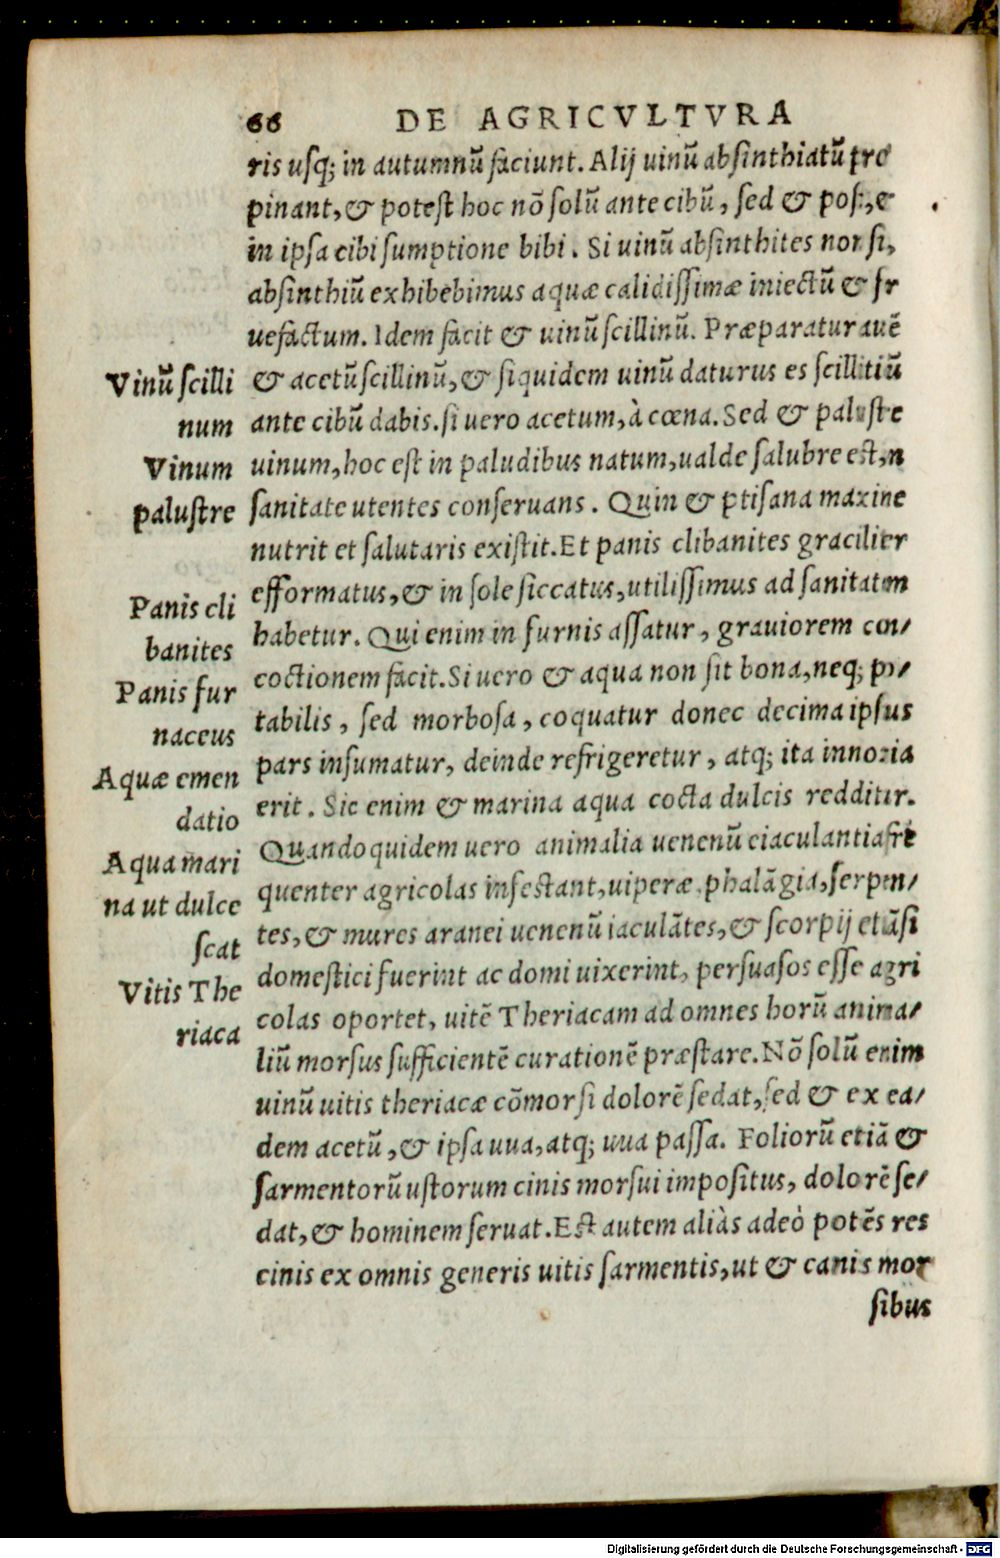 66 DE AGRICVLTVRA
ris usq; in autumnũ faciunt. Alij uinũ absinthiatũ pro
pinant, & potest hoc nõ solũ ante cibũ, sed & post, &
in ipsa cibi sumptione bibi. Si uinũ absinthites non sit,
absinthiũ exhibebimus aquæ calidissimæ iniectũ & fr
uefactum. Idem facit & uinũ scillinũ. Præparatur autẽ
Vinũ scilli
num
& acetũ scillinũ, & siquidem uinũ daturus es scilliticũ
ante cibũ dabis. si uero acetum, à cœna. Sed & palustre
Vinum
palustre
uinum, hoc est in paludibus natum, ualde salubre est, in
sanitate utentes conseruans. Quin & ptisana maxime
nutrit et salutaris existit. Et panis clibanites graciliter
efformatus, & in sole siccatus, utilissimus ad sanitatem
Panis cli
banites
habetur. Qui enim in furnis assatur, grauiorem con/
Panis fur
naceus
coctionem facit. Si uero & aqua non sit bona, neq; po/
tabilis, sed morbosa, coquatur donec decima ipsius
Aquæ emen
datio
pars insumatur, deinde refrigeretur, atq; ita innoxia
erit. Sic enim & marina aqua cocta dulcis redditur.
Aqua mari
na ut dulce
scat
Quandoquidem uero animalia uenenũ eiaculantia fre
quenter agricolas infestant, uiperæ, phalãgia, serpen/
tes, & mures aranei uenenũ iaculãtes, & scorpij etiãsi
Vitis The
riaca
domestici fuerint ac domi uixerint, persuasos esse agri
colas oportet, uitẽ Theriacam ad omnes horũ anima/
liũ morsus sufficientẽ curationẽ præstare. Nõ solũ enim
uinũ uitis theriacæ cõmorsi dolorẽ sedat, sed & ex ea/
dem acetũ, & ipsa uua, atq; uua passa. Foliorũ etiã &
sarmentorũ ustorum cinis morsui impositus, dolorẽ se/
dat, & hominem seruat. Est autem aliàs adeò potẽs res
cinis ex omnis generis uitis sarmentis, ut & canis mor
sibus
Digitalisierung gefördert durch die Deutsche Forschungsgemeinschaft - DFG